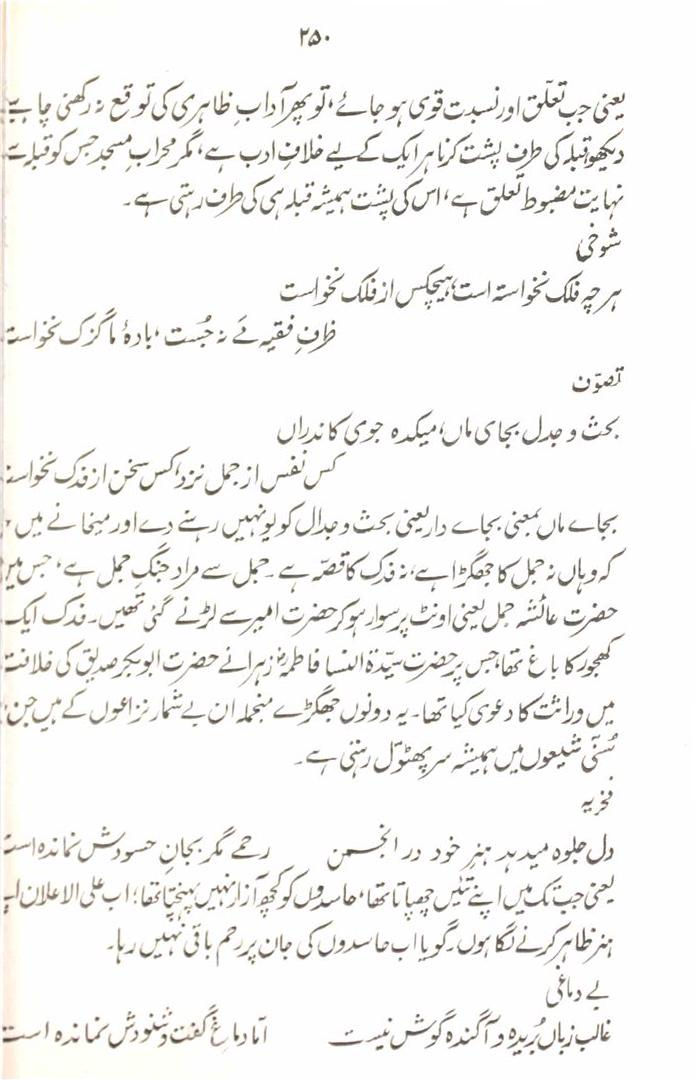 ۲۵۰
یعنی جب تعلّق اور نسبت قوی ہو جائے، تو پھر آدابِ ظاہری کی توقع نہ رکھنی چاہیے
دیکھو قبلہ کی طرف پشت کرنا ہر ایک کے لیے خلافِ ادب ہے، مگر محرابِ مسجد جس کو قبلہ سے
نہایت مضبوط تعلق ہے، اس کی پشت ہمیشہ قبلہ ہی کی طرف رہتی ہے۔
شوخی
ہر چہ فلک نخواستہ است، ہیچکس از فلک نخواست
ظرفِ فقیہ مَے نہ جُست، بادۂ ما گزک نخواست
تصوّف
بحث و جدل بجای ماں، میکدہ جوی کاندراں
کس نفس از جمل نزد، کس سخن از فدک نخواست
بجاے ماں بمعنی بجاے دار یعنی بحث و جدال کو یو نہیں رہنے دے اور میخانے میں
کہ وہاں نہ جمل کا جھگڑا ہے، نہ فدک کا قصّہ ہے۔ جمل سے مراد جنگِ جمل ہے، جس میں
حضرت عائشہ جمل یعنی اونٹ پر سوار ہو کر حضرت امیر سے لڑنے گئی تھیں۔ فدک ایک
کھجور کا باغ تھا، جس پر حضرت سیّدۃ النسا فاطمہ زہرا نے حضرت ابوبکر صدیق کی خلافت
میں وراثت کا دعویٰ کیا تھا۔ یہ دونوں جھگڑے منجملہ ان بے شمار نزاعوں کے ہیں جن
سُنّی شیعوں میں ہمیشہ سر پھٹوّل رہتی ہے۔
فخریہ
دل جلوہ میدہد ہنرِ خود در انجمن رحمے مگر بجانِ حسودش نماندہ است
یعنی جب تک میں اپنے تئیں چھپاتا تھا، حاسدوں کو کچھ آزار نہیں پہنچتا تھا؛ اب علی الاعلان
ہنر ظاہر کرنے لگا ہوں۔ گویا اب حاسدوں کی جان پر رحم باقی نہیں رہا۔
بے دماغی
غالب زباں بُریدہ و آگندہ گوش نیست امّا دماغِ گفت و شنودش نماندہ است